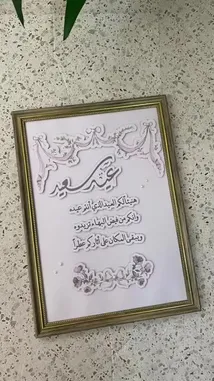 عيد سعيد
هنيئًا لكم العيد الذي أنتم عيده
وأنكم من فيض البهاء تزيدوه
ويبقى المكان على آثاركم عطرًا